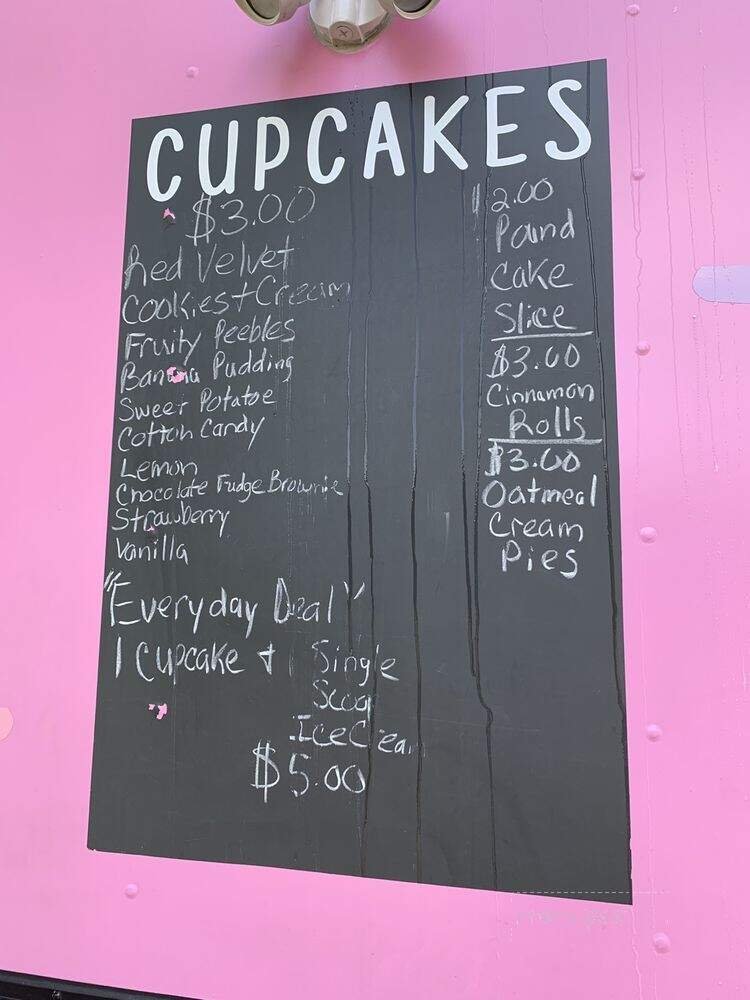 CUPCAKES
$3.00
Red Velvet
Cookies + Cream
Fruity Peebles
Banana Pudding
Sweet Potatoe
Cotton Candy
Lemon
Chocolate Fudge Brownie
Strawberry
Vanilla
"Everyday Deal"
1 Cupcake + 1 Single
Scoop
Ice Cream
$5.00
$2.00
Pound
Cake
Slice
$3.00
Cinnamon
Rolls
$3.00
Oatmeal
Cream
Pies